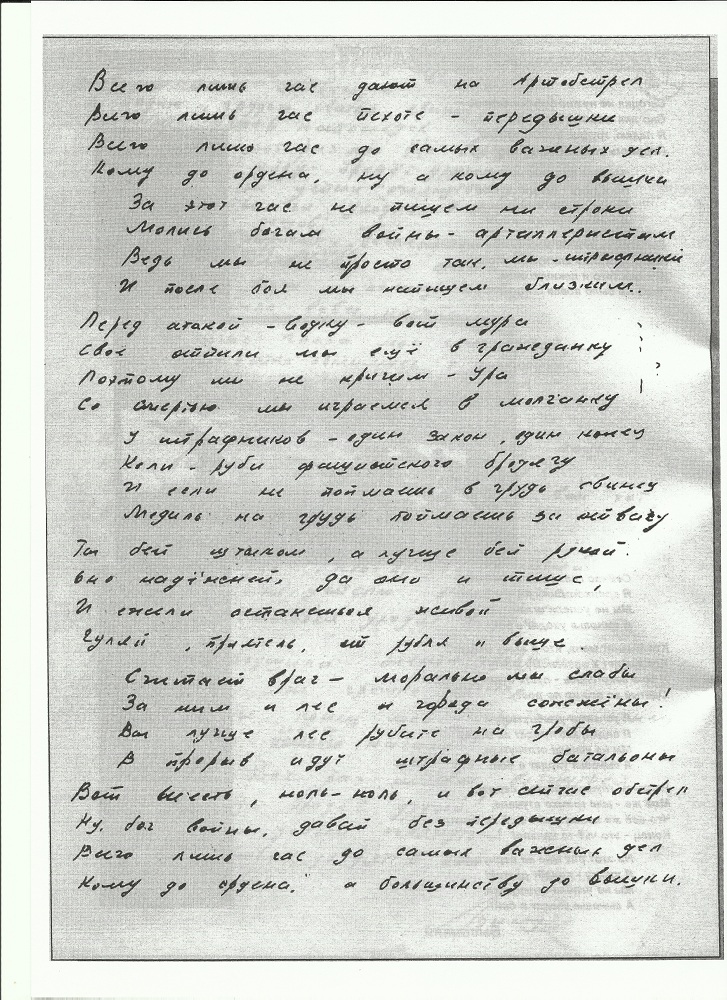 Всего лишь час дают на Артобстрел
Всего лишь час пехоте - передышки
Всего лишь час до самых важных дел.
Кому до ордена, ну а кому до вышки
За этот час не пишем ни строки
Молись богам войны - артиллеристам
Ведь мы не просто так, мы - штрафники
И после боя мы напишем близким..
Перед атакой - водку - вот мура
Своё отпили мы ещё в гражданку
Поэтому мы не кричим - Ура
Со смертью мы играемся в молчанку
У штрафников - один закон, один конец
Коли - руби фашистского бродягу
И если не поймаешь в грудь свинец
Медаль на грудь поймаешь за отвагу
Ты бей штыком, а лучше бей рукой.
Оно надёжней, да оно и тише,
И ежели останешься живой
Гуляй, приятель, от рубля и выше
Считает враг - морально мы слабы
За ним и лес и города сожжёны!
Вы лучше лес рубите на гробы
В прорыв идут штрафные батальоны
Вот шесть, ноль-ноль, и вот сейчас обстрел
Ну, бог войны, давай без передышки
Всего лишь час до самых важных дел
Кому до ордена, а большинству до вышки.